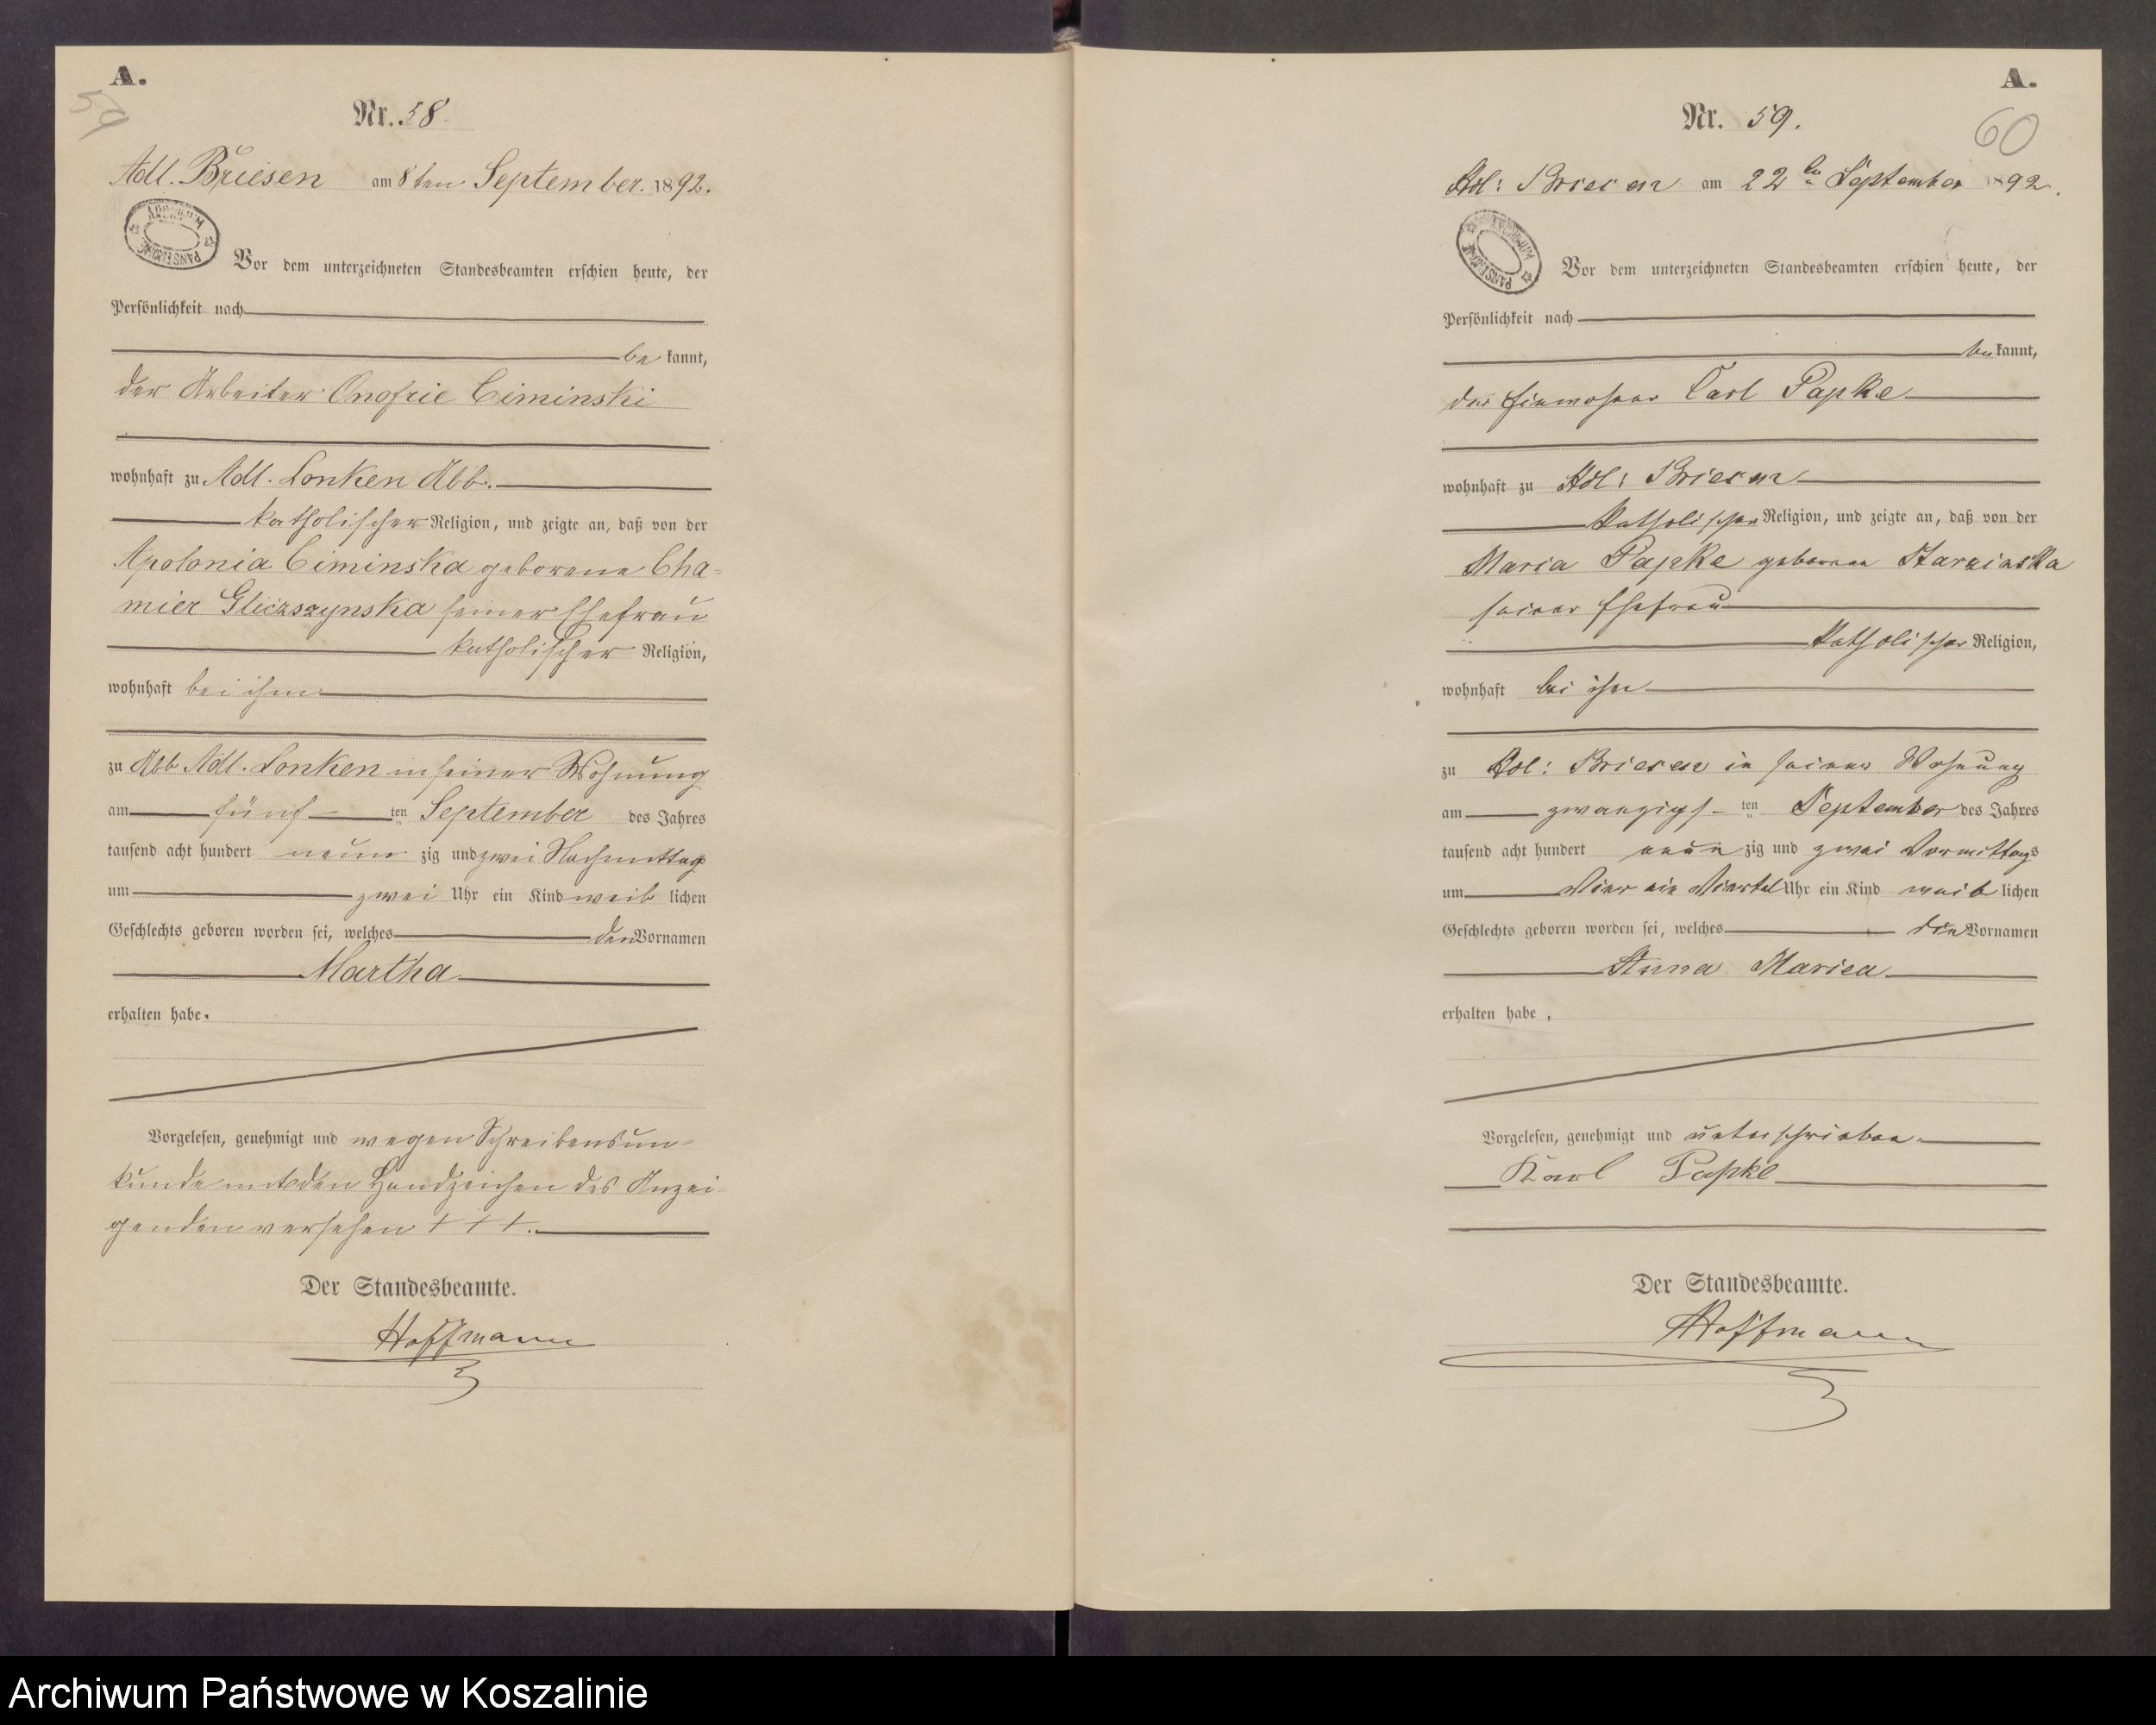 A.
59
Nr. 58
Adl. Briesen am 8ten September. 1892.
ARCHIWUM PAŃSTWOWE
Vor dem unterzeichneten Standesbeamten erschien heute, der
Persönlichkeit nach
be kannt,
der Arbeiter Onofrie Ciminski
wohnhaft zu Adl. Lonken Abb.
katholischer Religion, und zeigte an, daß von der
Apolonia Ciminska geborene Cha-
mier Gliczszynska seiner Ehefrau
katholischer Religion,
wohnhaft bei ihm
zu Abb Adl. Lonken in seiner Wohnung
am fünf ten September des Jahres
tausend acht hundert neun zig und zwei Nachmittag
um zwei Uhr ein Kind weib lichen
Geschlechts geboren worden sei, welches den Vornamen
Martha
erhalten habe.
Vorgelesen, genehmigt und wegen Schreibensun-
kunde mit den Handzeichen des Anzei-
genden versehen + + +.
Der Standesbeamte.
Hoffmann
A.
60
Nr. 59.
Adl: Briesen am 22ten September 1892.
ARCHIWUM PAŃSTWOWE
Vor dem unterzeichneten Standesbeamten erschien heute, der
Persönlichkeit nach
be kannt,
der Einwohner Carl Papke
wohnhaft zu Adl: Briesen
katholischer Religion, und zeigte an, daß von der
Maria Papke geborene
seiner Ehefrau
katholischer Religion,
wohnhaft bei ihm
zu Adl: Briesen in seiner Wohnung
am zwanzigs ten September des Jahres
tausend acht hundert neun zig und zwei Vormittags
um Vier ein Viertel Uhr ein Kind weib lichen
Geschlechts geboren worden sei, welches die Vornamen
Anna Maria
erhalten habe.
Vorgelesen, genehmigt und unterschrieben
Karl Papke
Der Standesbeamte.
Hoffmann
Archiwum Państwowe w Koszalinie